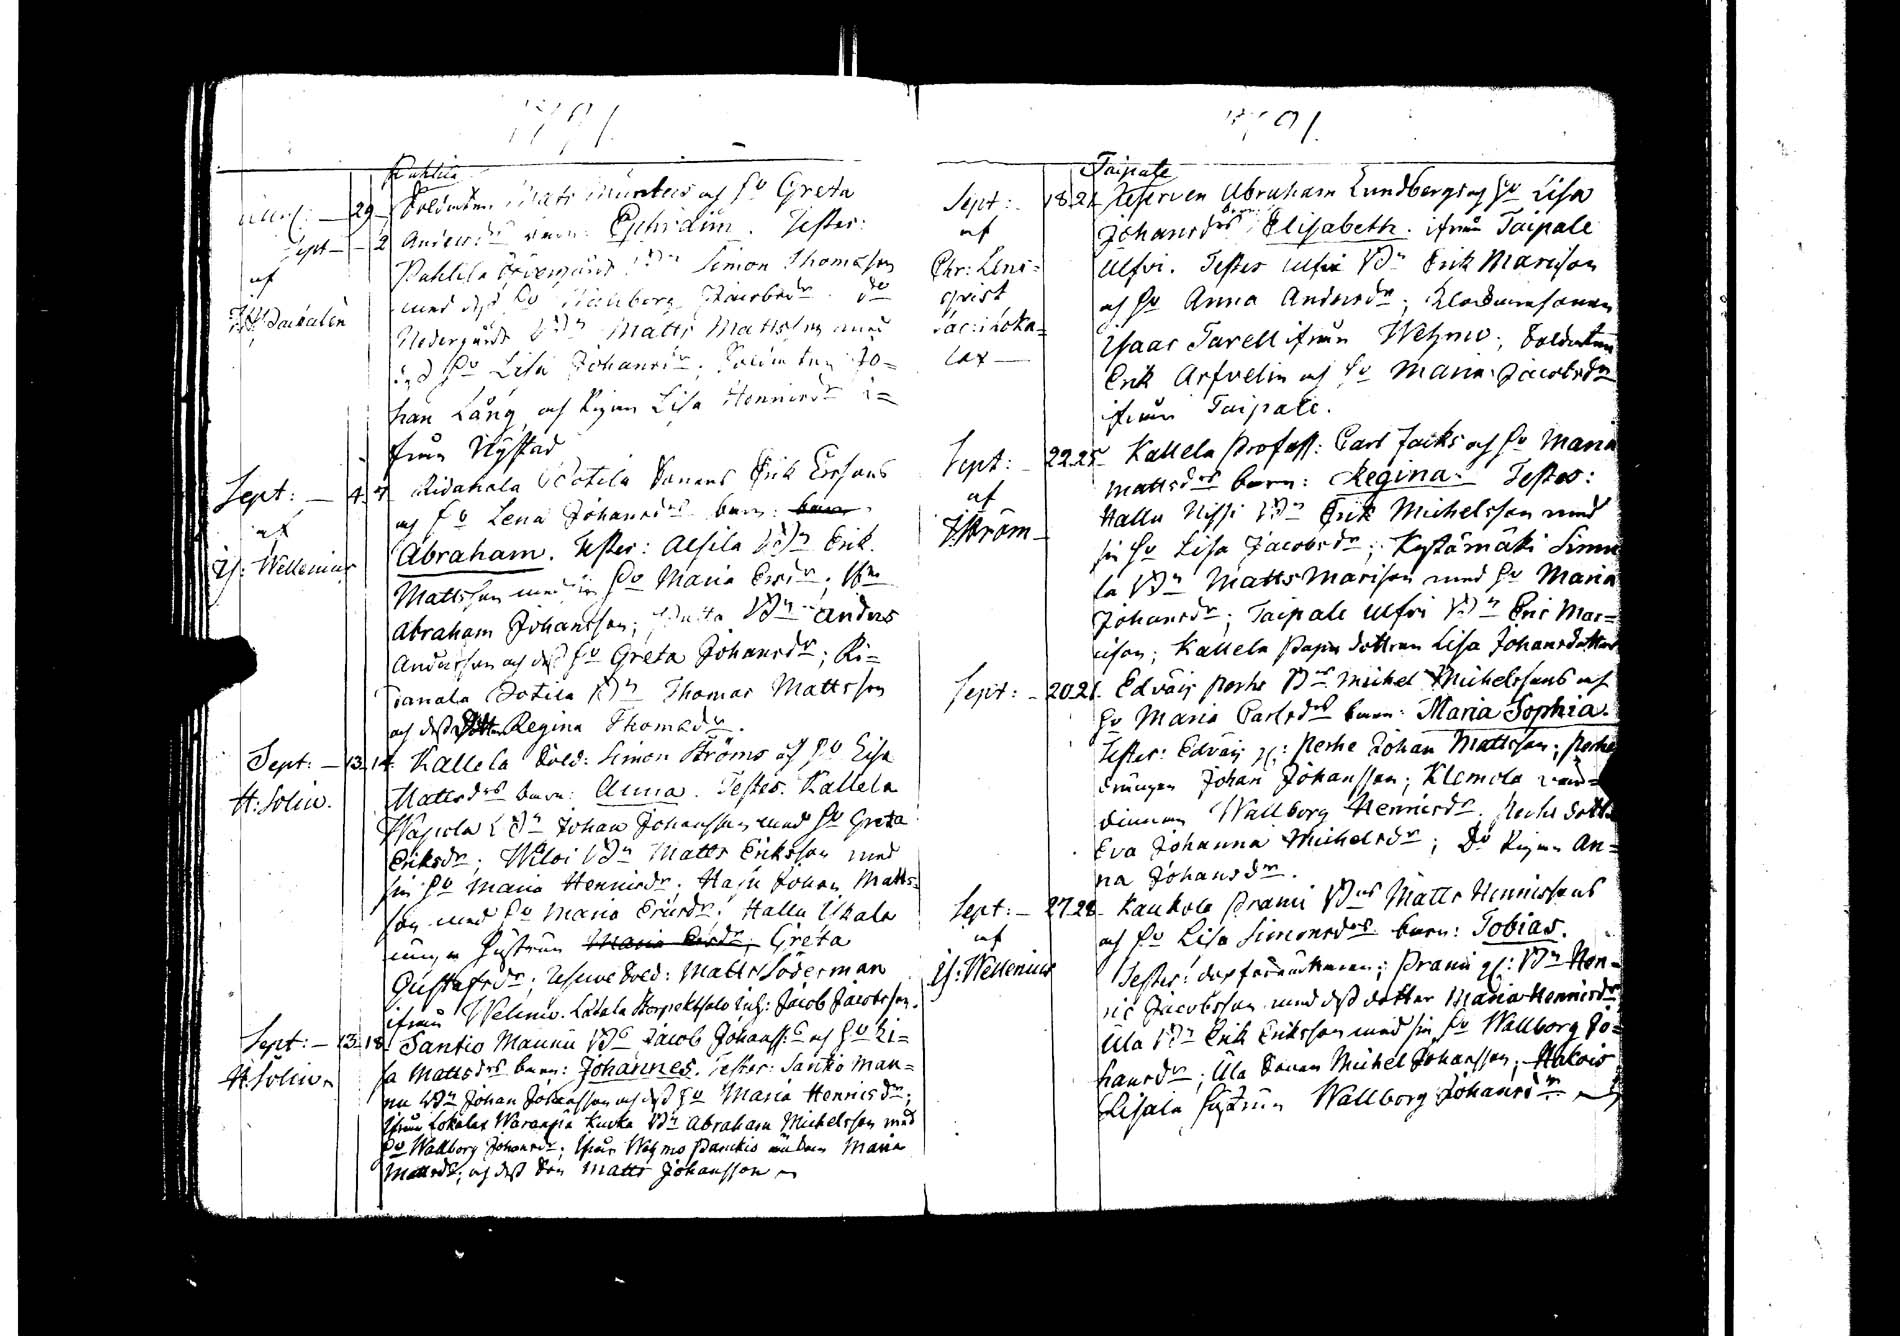 1791.
Pahlila
Soldaten Mats Munters och hu Greta
29
Sept — 2 Andersdrs barn: Ephraim. Testes:
af
Pahlila Öfvergård Bdn Simon Thomasson
med dess hu Wallborg Jacobsdr. do
Nedergård Bdn Matts Mattsson med
dess hu Lisa Johansdr. Soldaten Jo=
han Lång, och Pigan Lisa Hennicsdr i=
från Nystad
Sept: — 4. 7. Ridanala Sotila Sonens Erik Erssons
af
och hu Lena Johansdrs barn: barn
Js: Wellenius
Abraham. Testes: Alsila Bdn Erik
Mattsson med sin hu Maria Ersdr;
Abraham Johansson; Bdn Anders
Andersson och dess hu Greta Johansdr; Ri=
danala Sotila Bdn Thomas Mattsson
och dess dotter Regina Thomasdr.
Sept: — 13. 14. Kallela Sold: Simon Ströms och hu Lisa
H: Solin.
Mattsdrs barn: Anna. Testes: Kallela
Bdn Johan Johansson med hu Greta
Eriksdr; Wiloi Bdn Matts Eriksson med
sin hu Maria Hennicsdr; Johan Matts=
son med hu Maria Ericsdr; Hallu Ukala
hustrun Maria Ersdr; Greta
Gustafsdr; Sold: Matts Söderman
ifrån Wehmo. Jacob Jacobsson.
Sept: — 13. 18. Santio Maunu Bds Jacob Johanss:s och hu Li=
H: Solin
sa Mattsdrs barn: Johannes. Testes: Santio Mau=
nu Bdn Johan Johansson och dess hu Maria Hennicsdr;
ifrån Lokalax Waranpä Kuoka Bdn Abraham Michelsson med
hu Wallborg Johansdr; ifrån Wehmo Maria
Mattsdr; och dess Son Matts Johansson
1791.
Taipale
Sept: — 18. 21. Reserven Abraham Lundbergs och hu Lisa
af
Johansdrs barn Elisabeth. ifrån Taipale
Chr: Lens=
Ulfvi. Testes Ulfvi Bdn Erik Marcison
qvist
och hu Anna Andersdr; Klockaresonen
Sac: i Loka=
Isaac Tarell ifrån Wehmo; Soldaten
lax —
Erik Arfvelin och hu Maria Jacobsdr
ifrån Taipale.
Sept: — 22. 25. Kallela Profoss: Carl Jacks och hu Maria
af
Mattsdrs barn: Regina. Testes:
J: Ström —
Hallu Nissi Bdn Erik Michelsson med
sin hu Lisa Jacobsdr; Kystämäki Simu
la Bdn Matts Marcison med hu Maria
Johansdr; Taipale Ulfvi Bdn Eric Mar=
cison; Kallela Papu dottren Lisa Johansdotter
Sept: — 20. 21. Edväis Perhe Bds Michel Michelssons och
hu Maria Carlsdrs barn: Maria Sophia.
Testes: Edväis gl: Perhe Johan Mattsson; Perhe
drängen Johan Johansson; Klemola värd=
dinnan Wallborg Hennicsdr; Perhe dottr
Eva Johanna Michelsdr; Do Pigan An=
na Johansdr.
Sept: — 27. 28. Kaukola Pranni Bds Matts Hennicssons
af
och hu Lisa Simonsdrs barn: Tobias.
Js: Wellenius
Testes: Pranni gl: Bdn Hen=
ric Jacobsson med dess dotter Maria Hennicsdr
Ula Bdn Erik Eriksson med sin hu Wallborg Jo=
hansdr; Ula Sonen Michel Johansson; Halois
Lisala hustrun Wallborg Johansdr